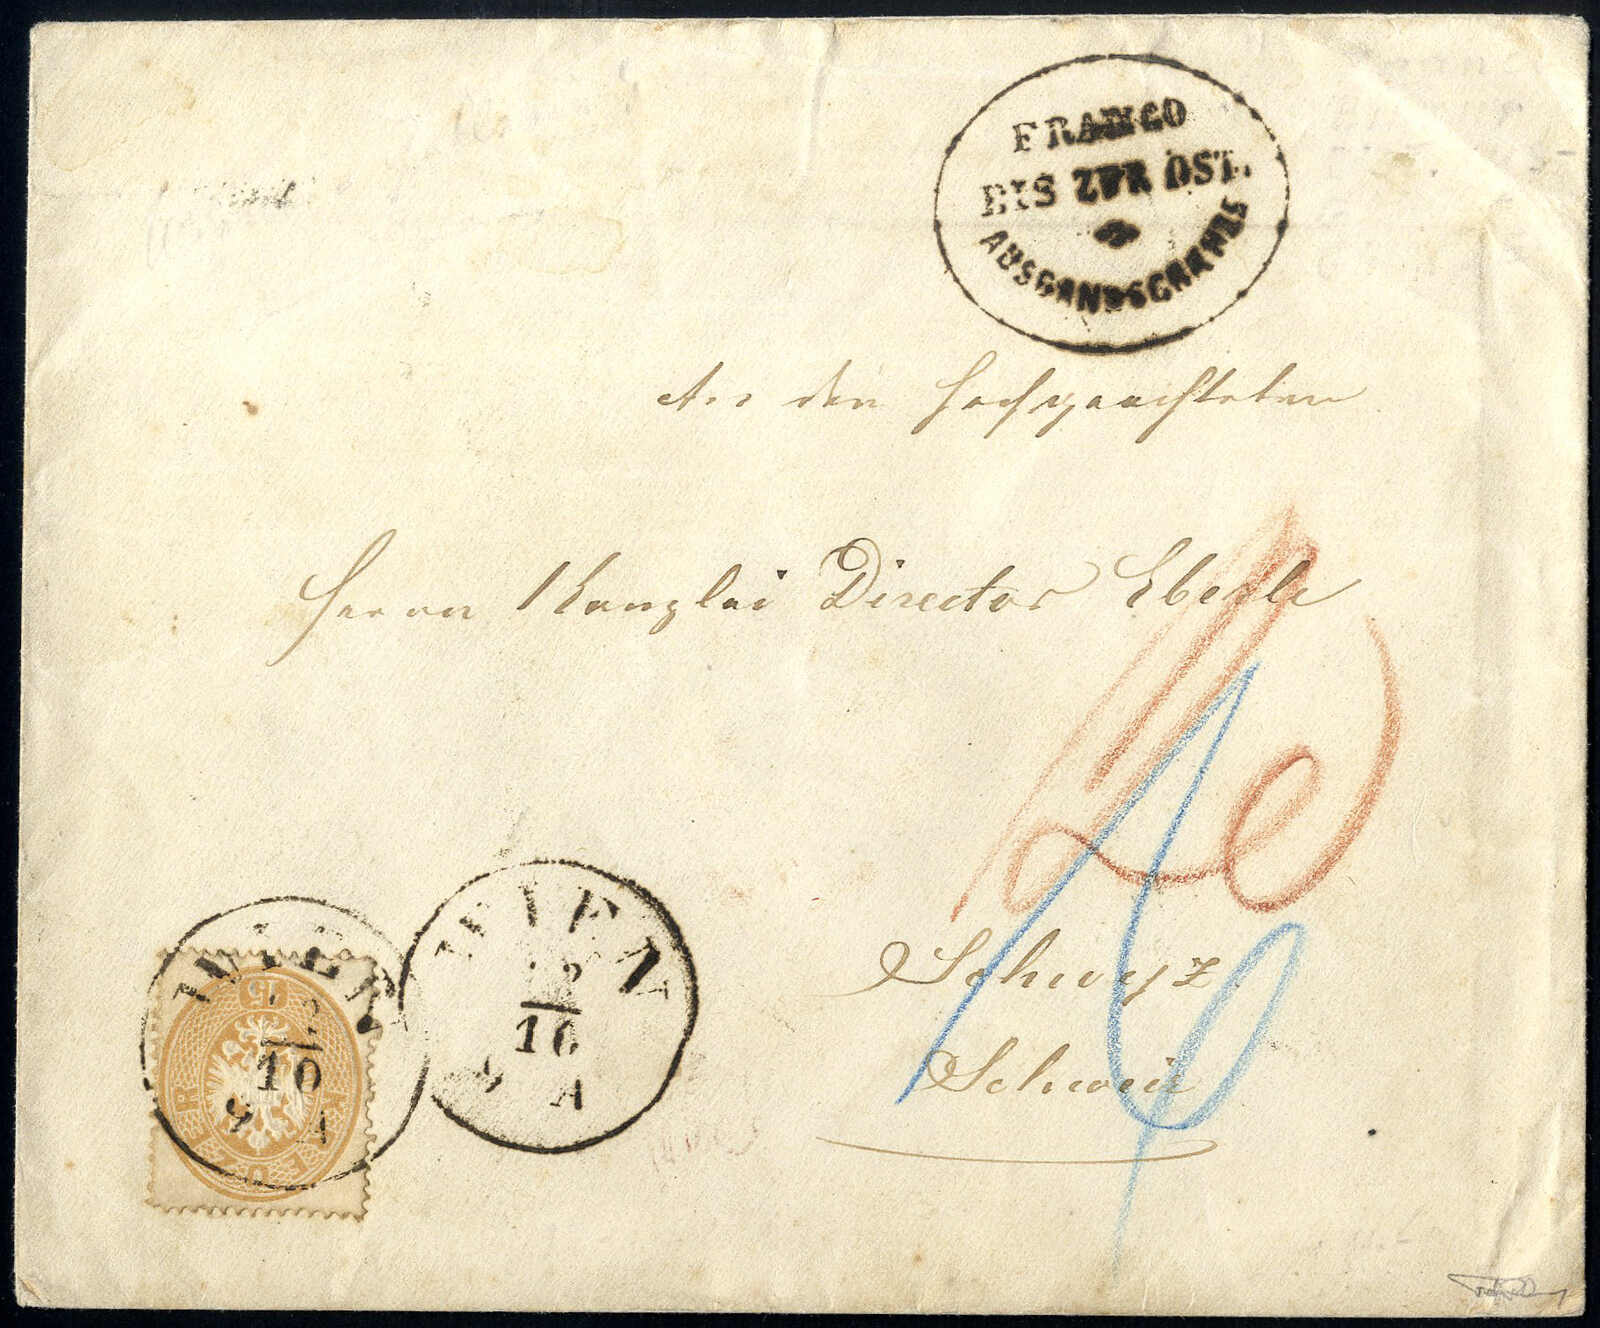 FRANCO
BIS ZUR ÖST.
AUSGANGSGRÄNZE
An den Hochgeachteten
Herrn Kanzlei Director Eberle
Schwyz
Schweiz
WIEN
10
A
WIEN
12
10
A
15
KREUZER